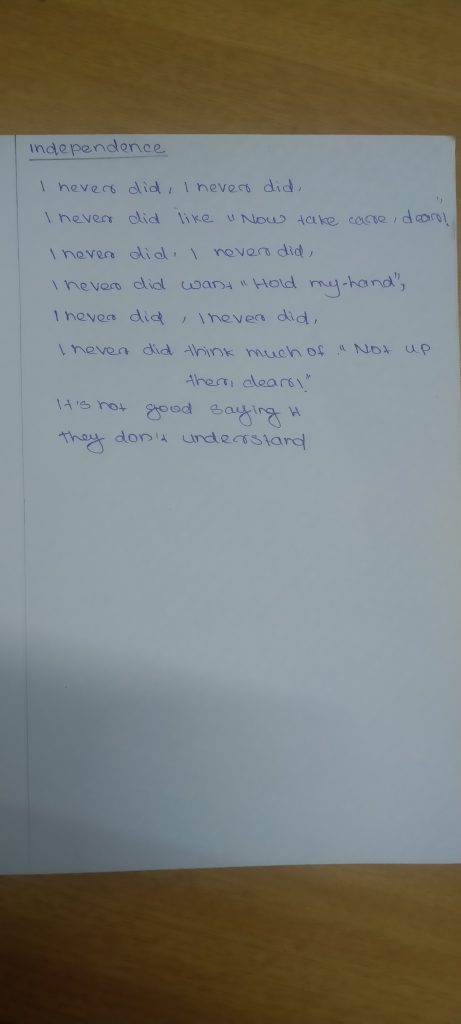 Independence
I never did, I never did,
I never did like "Now take care, dear!"
I never did, I never did,
I never did want "Hold my-hand",
I never did, I never did,
I never did think much of "Not up
ther, dear!"
It's not good saying it
they don't understand